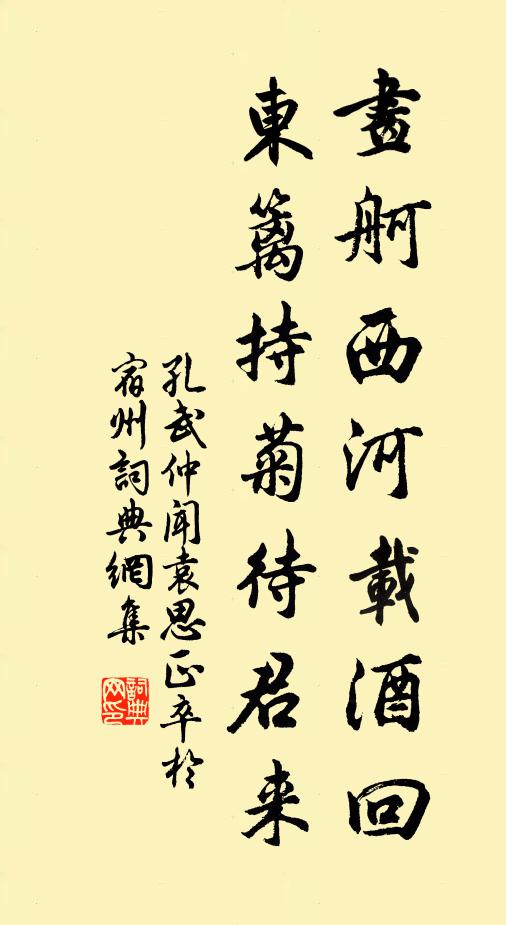 畫舸西河載酒回
東籬持菊待君来
孔武仲聞袁思正卒於
宿州詞典網集
詞典网印